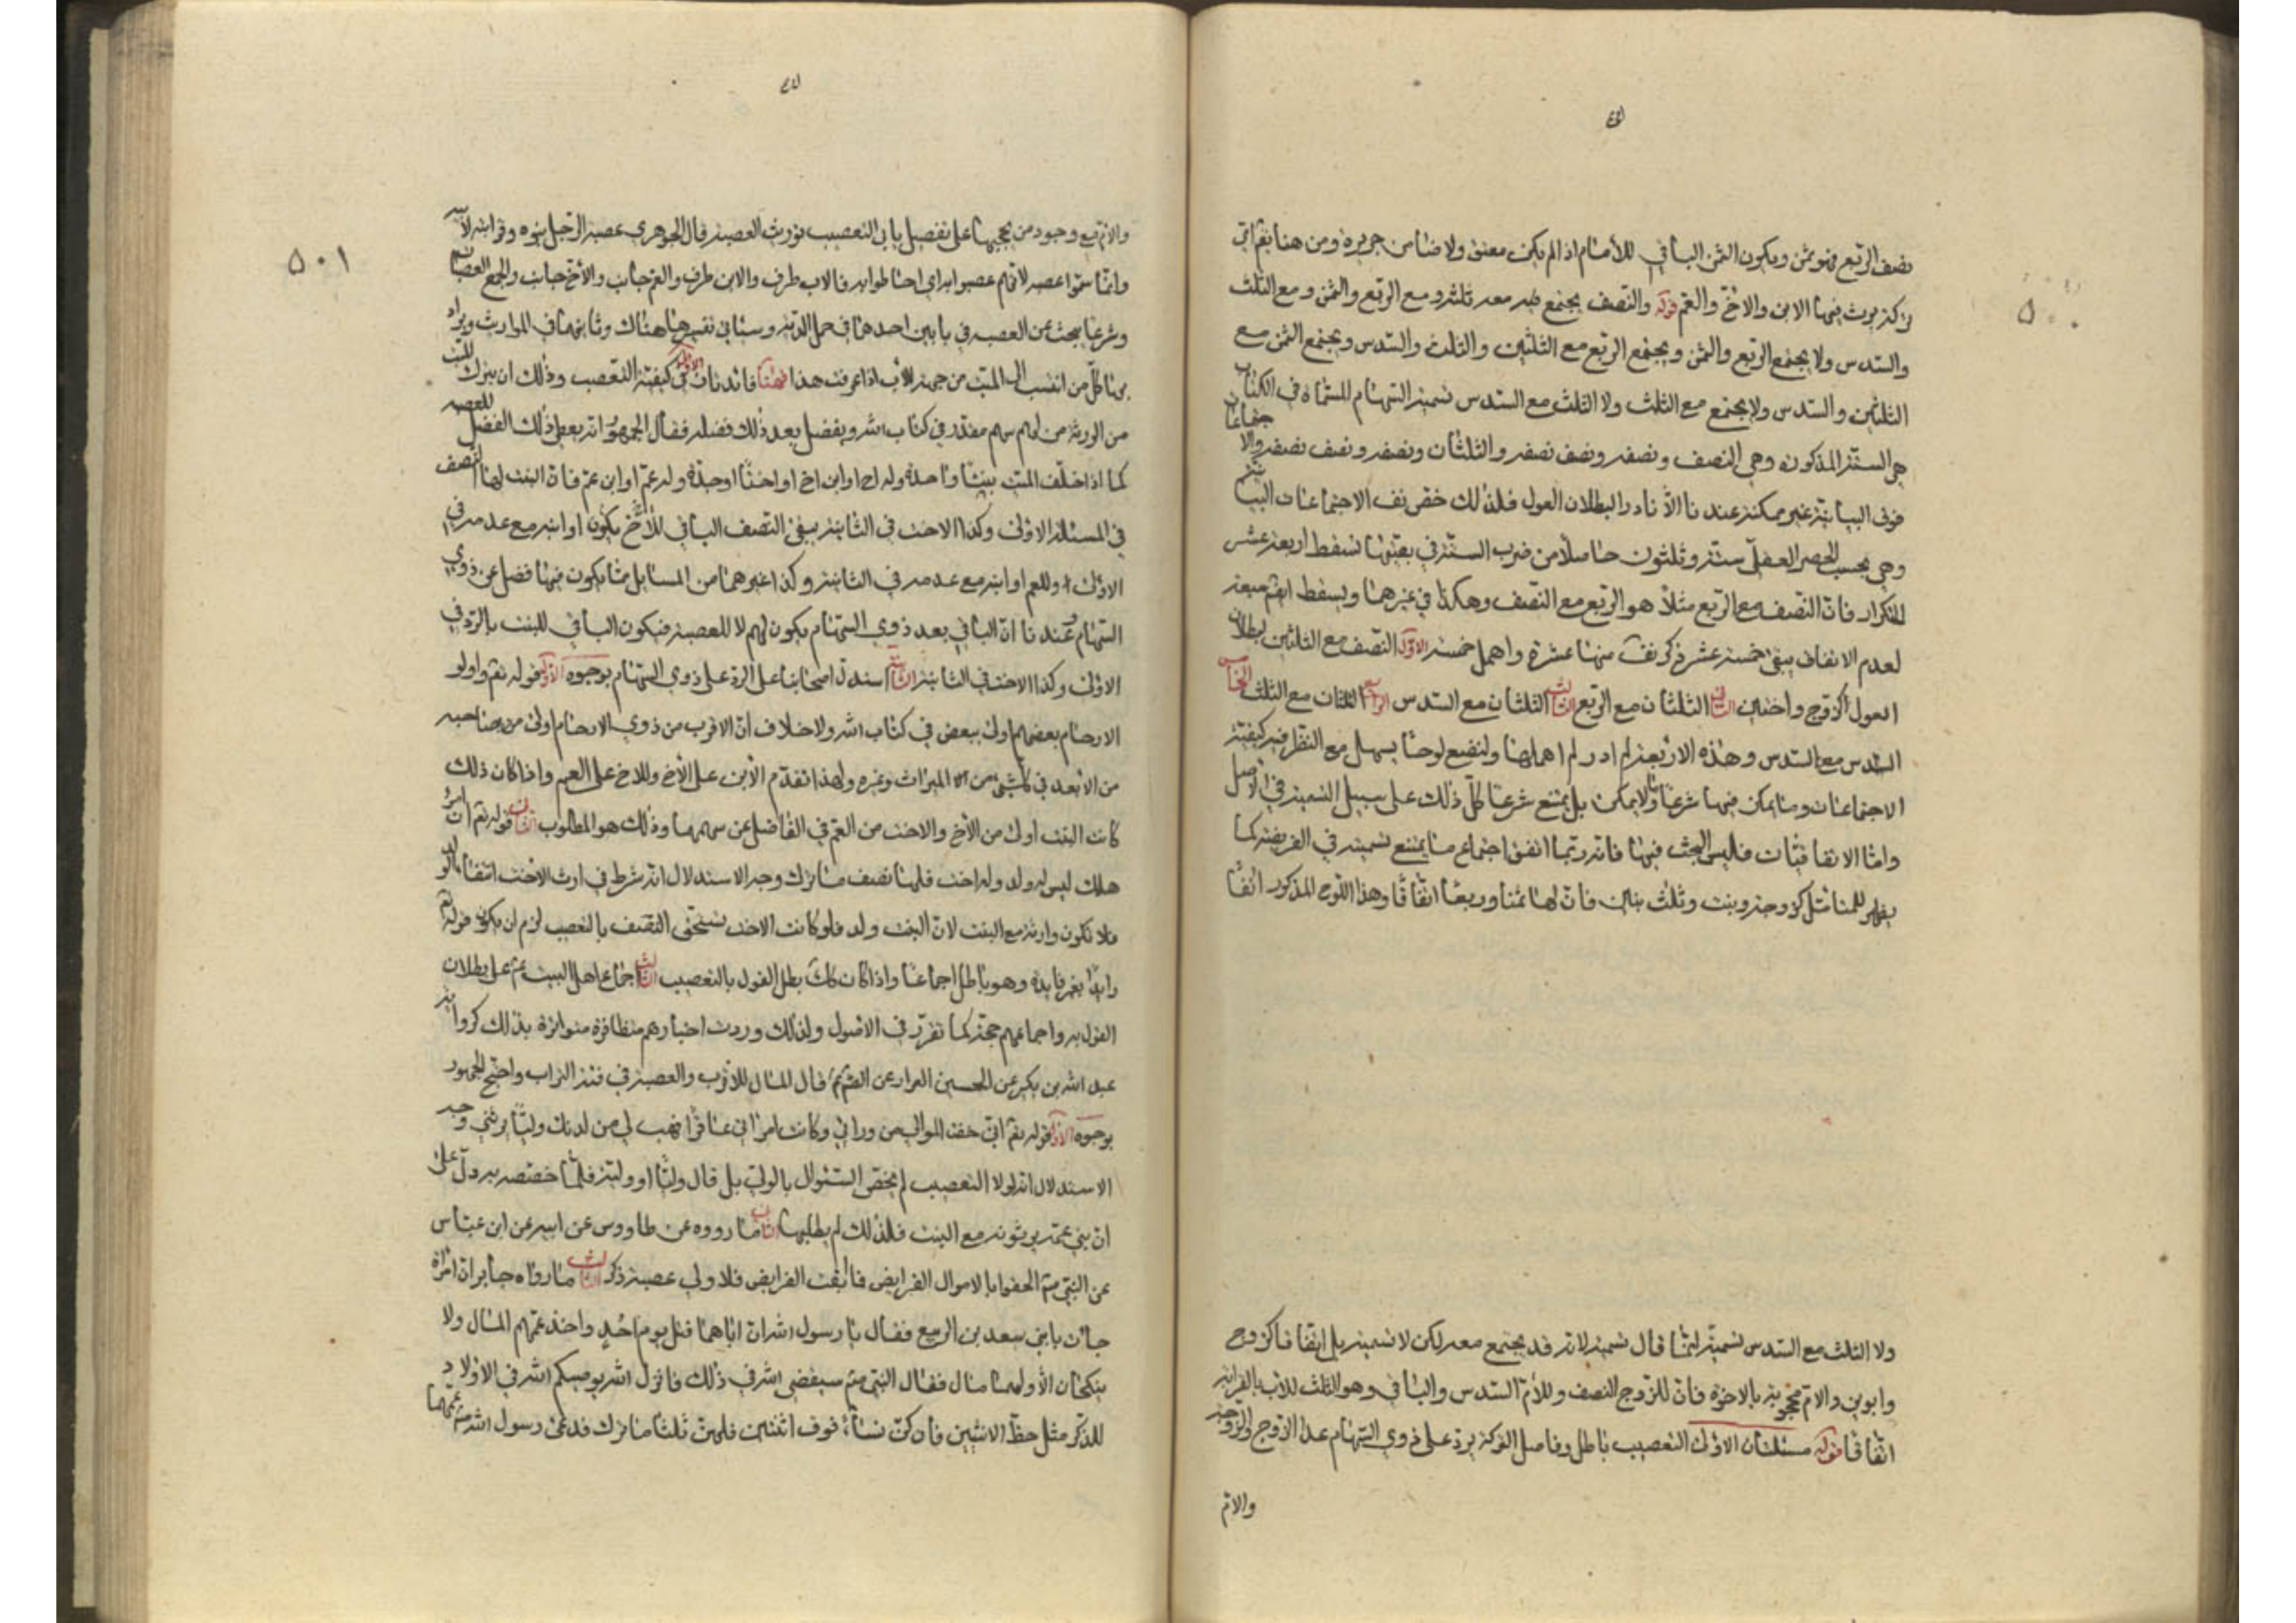 ٥٠٠
نصف الربع فهو ثمن ويكون الثمن الباقي للأمام اذا لم يكن معتق ولا ضامن جريرة ومن هنا يعم اي
تركة يرث فيها الابن والاخ والعم قوله والنصف يجتمع مع مثله ومع الربع والثمن ومع الثلث
والسدس ولا يجتمع الربع والثمن ويجتمع الربع مع الثلثين والثلث والسدس ويجتمع الثمن مع
الثلثين والسدس ولا يجتمع مع الثلث ولا الثلث مع السدس تسمية السهام المسماة في الكتاب
هي الستة المذكورة وهي النصف ونصفه ونصف نصفه والثلثان ونصفه ونصف نصفه والاجتماعات
فوق الثنائية غير ممكنة عندنا الا نادرا لبطلان العول فلذلك خص المصنف الاجتماعات الثنائية
وهي بحسب الحصر العقلي ستة وثلثون حاصلا من ضرب الستة في بعينها تسقط اربعة عشر
للتكرار فان النصف مع الربع مثلا هو الربع مع النصف وهكذا في غيرهما ويسقط ايضا سبعة
لعدم الاتفاق يبقى خمسة عشر ذكر المصنف منها عشرة واهمل خمسة الاول النصف مع الثلثين لبطلان
العول كزوج واختين الثاني الثلثان مع الربع الثالث الثلثان مع السدس الرابع الثلثان مع الثلث الخامس
السدس مع السدس وهذه الاربعة لم ادر لم اهملها ولنضع لوحا يسهل مع النظر فيه كيفية
الاجتماعات وما يمكن فيها شرعا وما لا يمكن بل يمتنع شرعا كل ذلك على سبيل التسمية في الاصل
واما الاتفاقيات فليس البحث فيها فانه ربما اتفق اجتماع ما يمتنع تسميته في الفريضة كما
يظهر للمتأمل كزوجة وبنت وثلث بنات فان لها ثمنا وربعا اتفاقا وهذا اللوح المذكور آنفا
ولا الثلث مع السدس تسمية انما قال تسمية لانه قد يجتمع معه لكن لا تسمية بل اتفاقا كزوج
وابوين والام محجوبة بالاخوة فان للزوج النصف وللأم السدس والباقي وهو الثلث للأب بالقرابة
اتفاقا قوله مسئلتان الاولى التعصيب باطل وفاضل التركة يرد على ذوي السهام عدا الزوج والزوجة
والام
٥٠١
والام مع وجود من يحجبها على تفصيل يأتي التعصيب توريث العصبة قال الجوهري عصبة الرجل بنوه وقرابته لابيه
وانما سموا عصبة لانهم عصبوا به اي احاطوا به فالاب طرف والابن طرف والعم جانب والاخ جانب والجمع العصبات
وشرعا يبحث عن العصبة في بابين احدهما في حمل الدية وسيأتي تفسيرها هناك وثانيهما في المواريث ويراد
بها كل من انتسب الى الميت من جهة الأب اذا عرفت هذا فهنا فائدتان الاولى في كيفية التعصيب وذلك ان يترك الميت
من الورثة من لهم سهم مقدر في كتاب الله ويفضل بعد ذلك فضلة فقال الجمهور انه يعطى ذلك الفضل للعصبة
كما اذا خلف الميت بنتا واحدة وله اخ او ابن اخ او اختا واحدة وله عم او ابن عم فان البنت لها النصف
في المسئلة الاولى وكذا الاخت في الثانية يبقى النصف الباقي للأخ يكون او ابنه مع عدمه في
الاولى وللعم او ابنه مع عدمه في الثانية وكذا غيرهما من المسايل مما يكون فيها فضل عن ذوي
السهام وعندنا ان الباقي بعد ذوي السهام يكون لهم لا للعصبة فيكون الباقي للبنت بالرد في
الاولى وكذا الاخت في الثانية الثانية استدل اصحابنا على الرد على ذوي السهام بوجوه الاول قوله تعم واولو
الارحام بعضهم اولى ببعض في كتاب الله ولا خلاف ان الاقرب من ذوي الارحام اولى من صاحبه
من الابعد في كل شيء من الميراث وغيره ولهذا تقدم الابن على الأخ والاخ على العم واذا كان ذلك
كانت البنت اولى من الأخ والاخت من العم في الفاضل عن سهمها وذلك هو المطلوب الثاني قوله تعم ان امرؤ
هلك ليس له ولد وله اخت فلها نصف ما ترك وجه الاستدلال انه شرط في ارث الاخت انتفاء الولد
فلا تكون وارثة مع البنت لان البنت ولد فلو كانت الاخت تستحق النصف بالتعصيب لزم ان يكون قوله تم
زايدا بغير فايدة وهو باطل اجماعا واذا كان كك بطل القول بالتعصيب الثالث اجماع اهل البيت عم على بطلان
القول به واجماعهم حجة كما تقرر في الاصول ولذلك وردت اخبارهم متظافرة متواترة بذلك كرواية
عبد الله بن بكير عن الحسين البزاز عن الصم قال المال للأقرب والعصبة في فيه التراب واحتج الجمهور
بوجوه الاول قوله تعم اني خفت الموالي من ورائي وكانت امرأتي عاقرا فهب لي من لدنك وليا يرثني وجه
الاستدلال انه لولا التعصيب لم يخص السئوال بالولي بل قال وليا او ولية فلما خصصه به دل على
ان بني عمه يرثونه مع البنت فلذلك لم يطلبها الثاني ما رووه عن طاووس عن ابيه عن ابن عباس
عن النبي صم الحقوا بالاموال الفرايض فما بقت الفرايض فلاولي عصبة ذكر الثالث ما رواه جابر ان امرأة
جاءت بابنتي سعد بن الربيع فقال يا رسول الله ان اباهما قتل يوم احد واخذ عمهم المال ولا
ينكحان الا ولهما مال فقال النبي صم سيقضي الله في ذلك فانزل الله يوصيكم الله في الاولاد
للذكر مثل حظ الانثيين فان كن نساء فوق اثنتين فلهن ثلثا ما ترك فدعى رسول الله صم عمهما